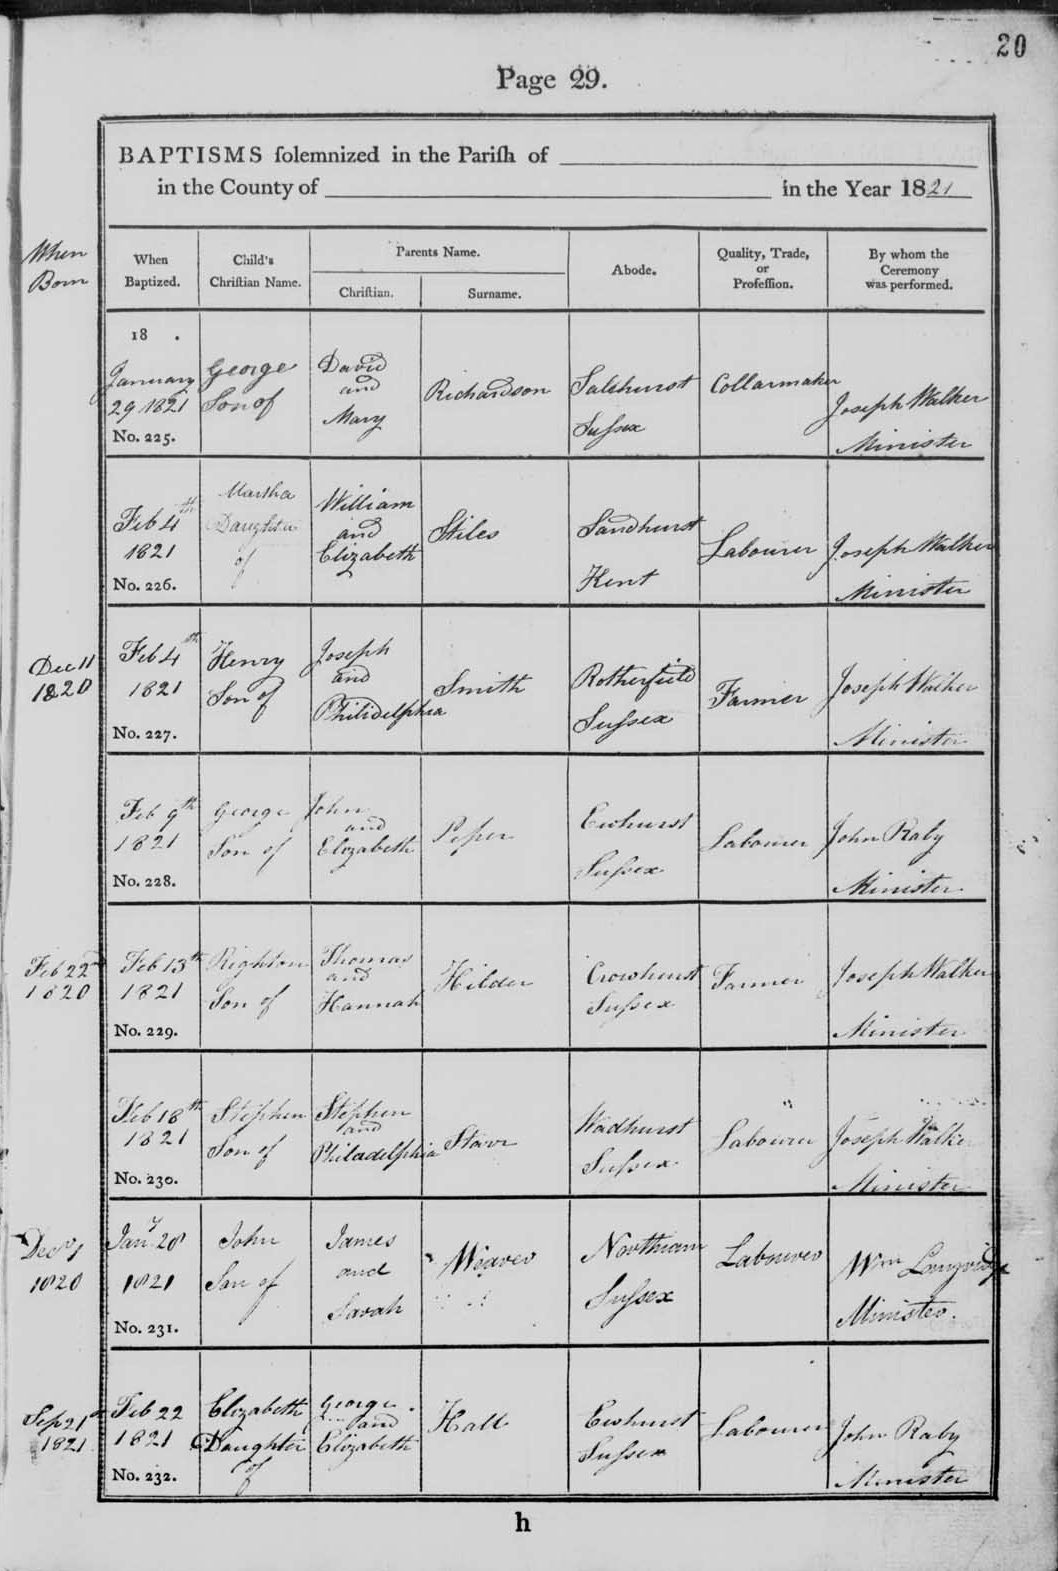 20
Page 29.
BAPTISMS ſolemnized in the Pariſh of
in the County of in the Year 1821
When
Born
When
Baptized.
Child's
Chriſtian Name.
Parents Name.
Chriſtian.
Surname.
Abode.
Quality, Trade,
or
Profeſſion.
By whom the
Ceremony
was performed.
18 .
January
29 1821
No. 225.
George
Son of
David
and
Mary
Richardson
Salehurst
Suſsex
Collarmaker
Joseph Walker
Minister
Feb 4th
1821
No. 226.
Martha
Daughter
of
William
and
Elizabeth
Stiles
Sandhurst
Kent
Labourer
Joseph Walker
Minister
Dec 11
1820
Feb 4th
1821
No. 227.
Henry
Son of
Joseph
and
Philidelphia
Smith
Rotherfield
Suſsex
Farmer
Joseph Walker
Minister
Feb 9th
1821
No. 228.
George
Son of
John
and
Elizabeth
Piper
Ewhurst
Suſsex
Labourer
John Raby
Minister
Feb 22d
1820
Feb 13th
1821
No. 229.
Righton
Son of
Thomas
and
Hannah
Hilder
Crowhurst
Suſsex
Farmer
Joseph Walker
Minister
Feb 18th
1821
No. 230.
Stephen
Son of
Stephen
and
Philadelphia
Starr
Wadhurst
Suſsex
Labourer
Joseph Walker
Minister
1820
Jany 28
1821
No. 231.
John
Son of
James
and
Sarah
Weaver
Northiam
Suſsex
Labourer
Wm
Minister.
Sep 21st
1821
Feb 22
1821
No. 232.
Elizabeth
Daughter
of
George
and
Elizabeth
Hall
Ewhurst
Suſsex
Labourer
John Raby
Minister
h